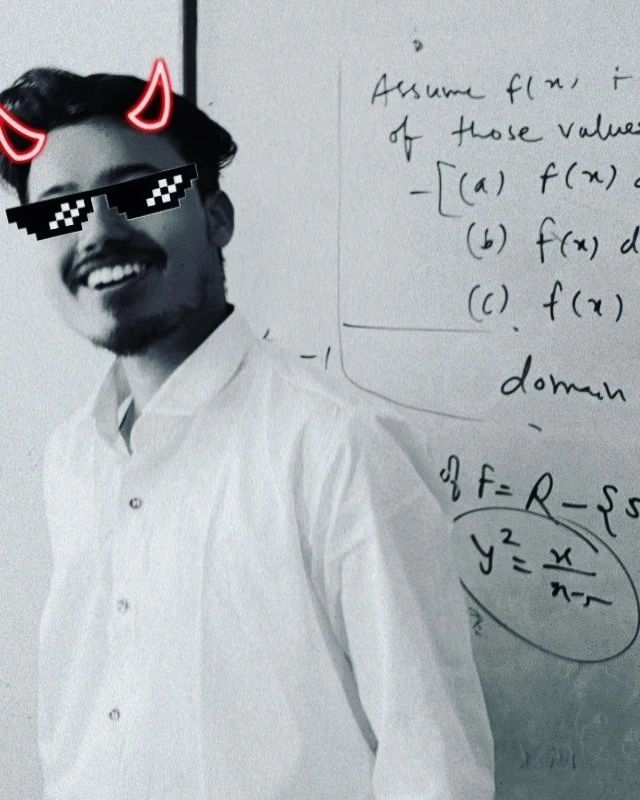 Assume f(x)
of those values
-[(a) f(x)
(b) f(x) d
(c) f(x)
-1
domain
of F= R-{5
y²= x/x-5